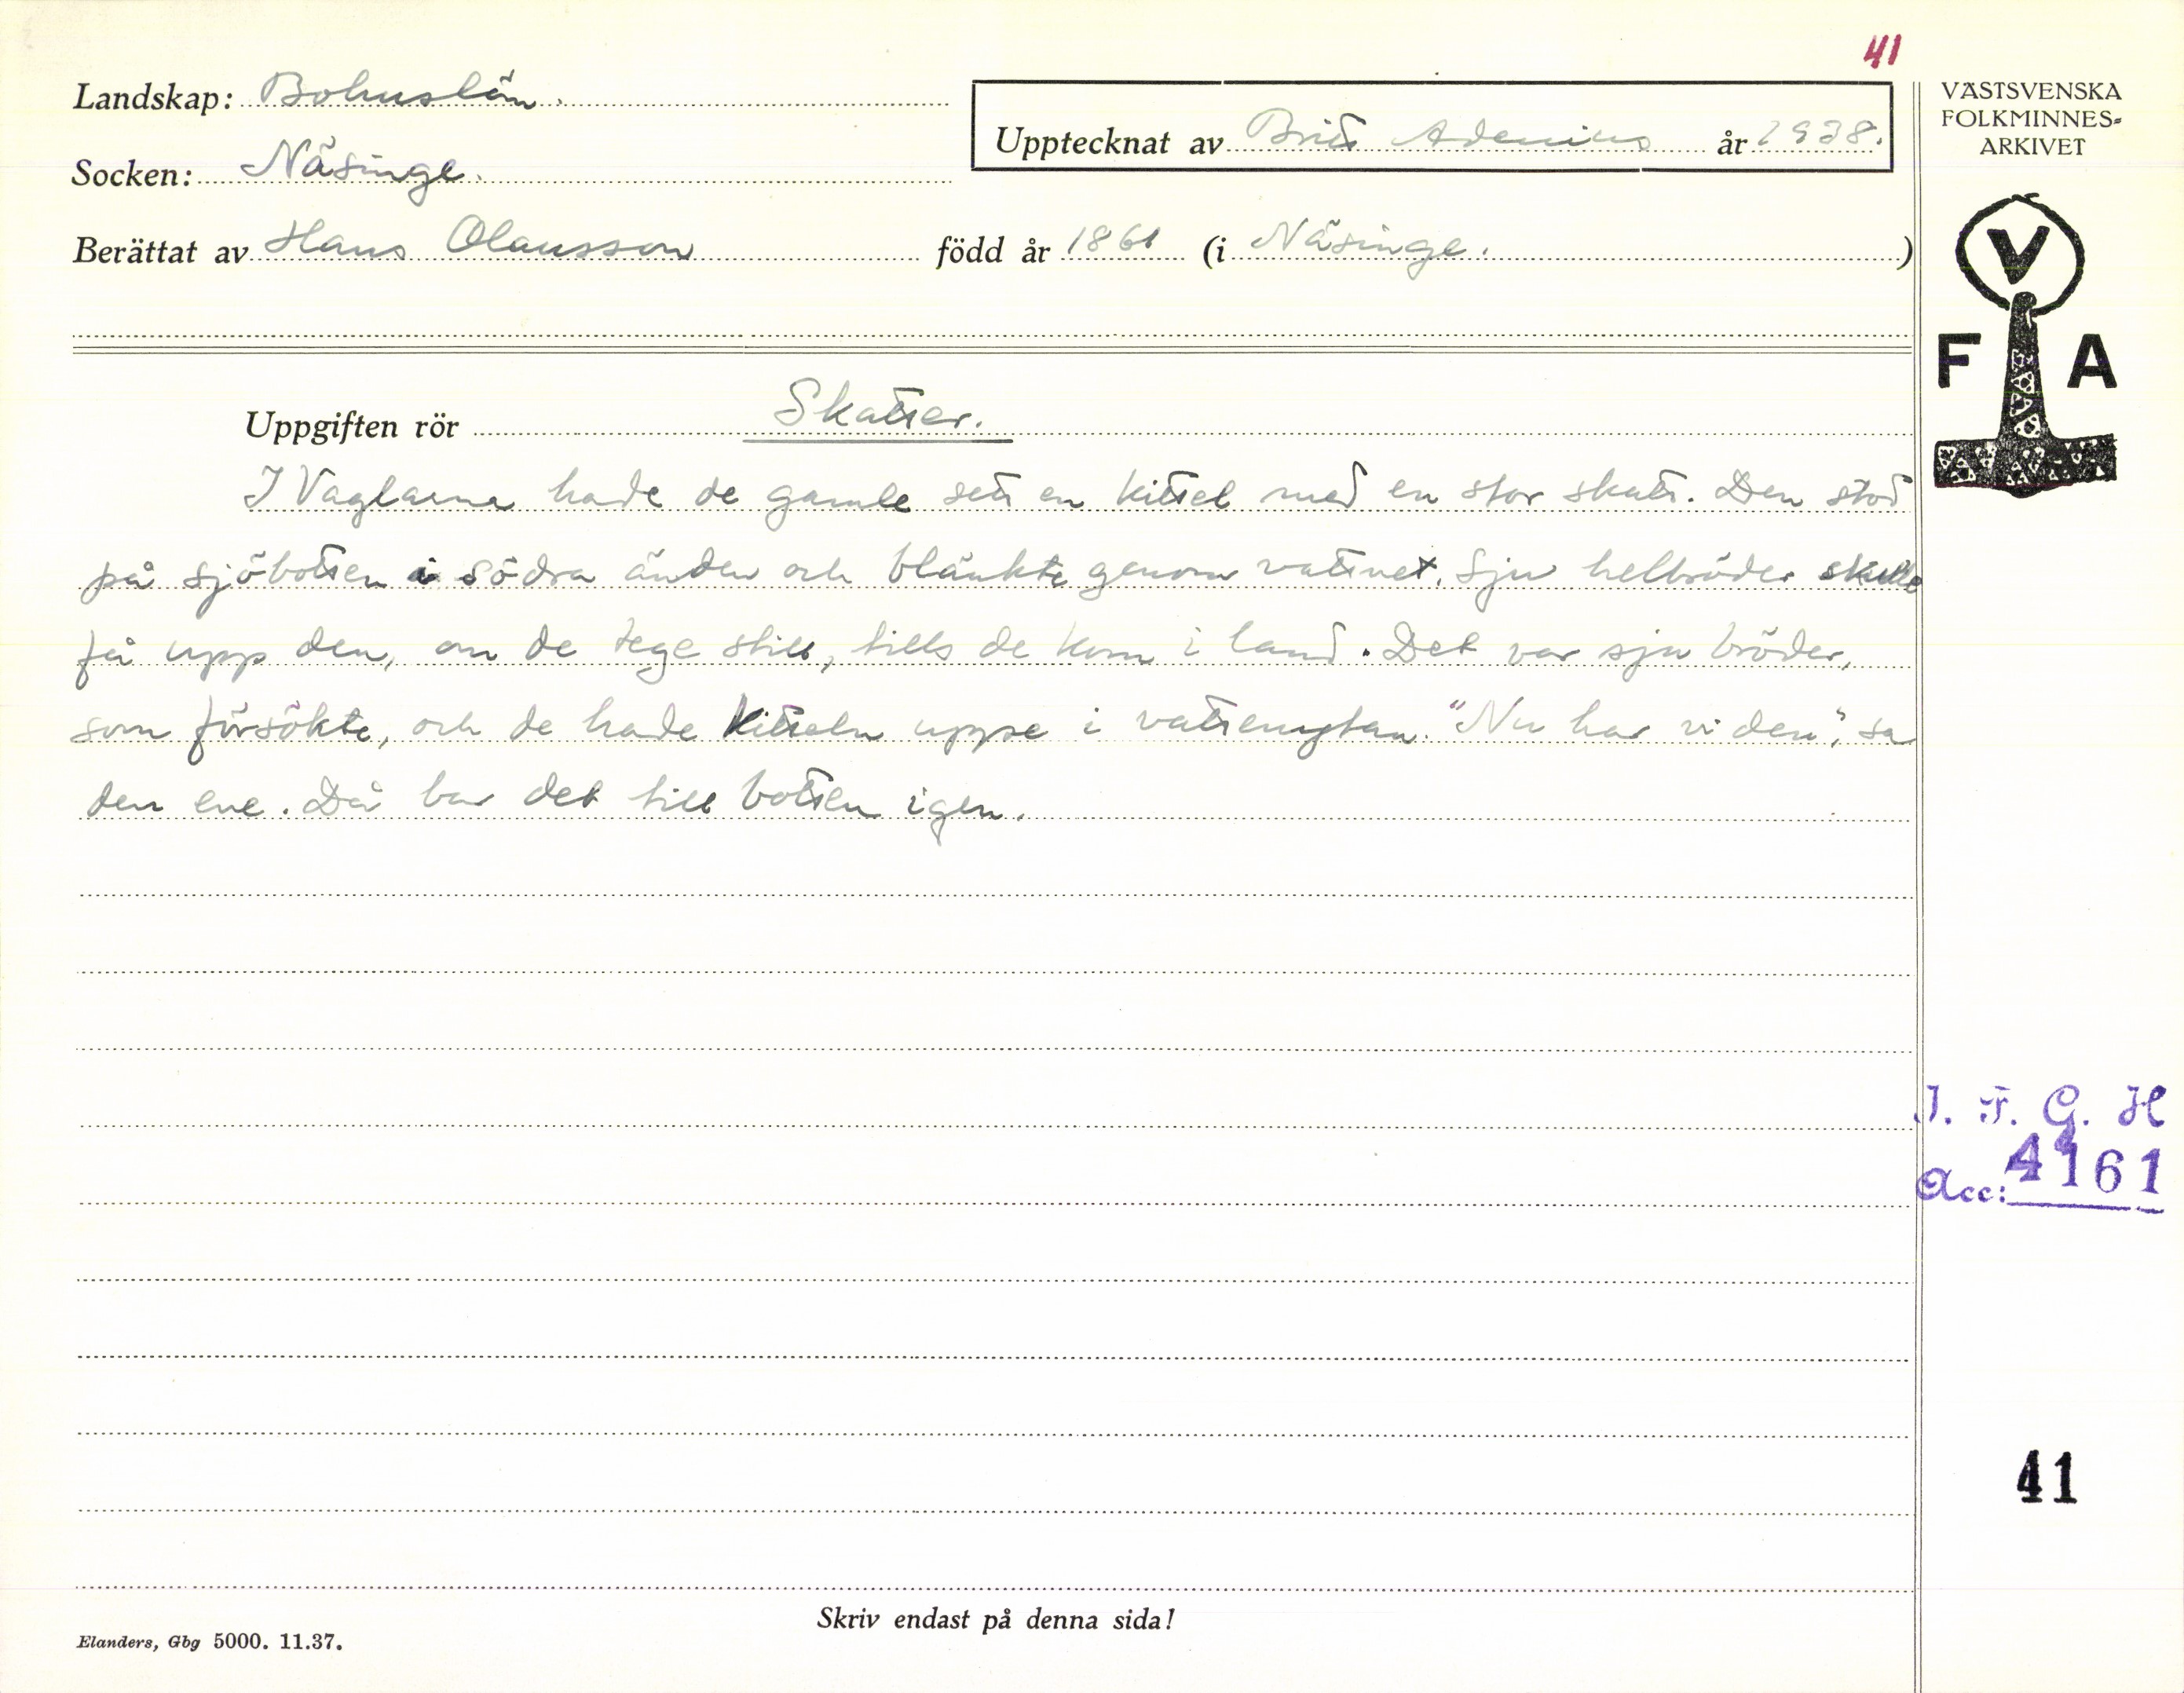 41
Landskap: Bohuslän.
Upptecknat av Britt Adenius år 1938.
VÄSTSVENSKA
FOLKMINNES-
ARKIVET
Socken: Näsinge.
Berättat av Hans Olausson född år 1861 (i Näsinge.)
V
F A
Uppgiften rör Skatter.
I Vaglarna hade de gamle sett en kittel med en stor skatt. Den stod
på sjöbotten i södra änden och blänkte genom vattnet. Sju helbröder skulle
få upp den, om de tege still, tills de kom i land. Det var sju bröder,
som försökte, och de hade kitteln uppe i vattenytan. "Nu har vi den", sa
den ene. Då bar det till botten igen.
I. F. G. H
Acc: 4161
41
Skriv endast på denna sida!
Elanders, Gbg 5000. 11.37.